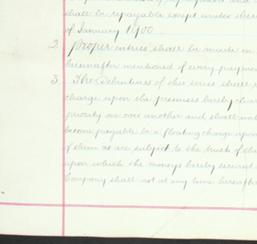 shall be repayable except under
of January 1900
2. Proper entries shall be made in
hereinafter mentioned of every payment
3. The Debentures of this series shall
charge upon the premises hereby char
priority one over another and shall
become payable be a floating charge upon
of them as are subject to the
upon which the moneys hereby secured
Company shall not at any time hereafter